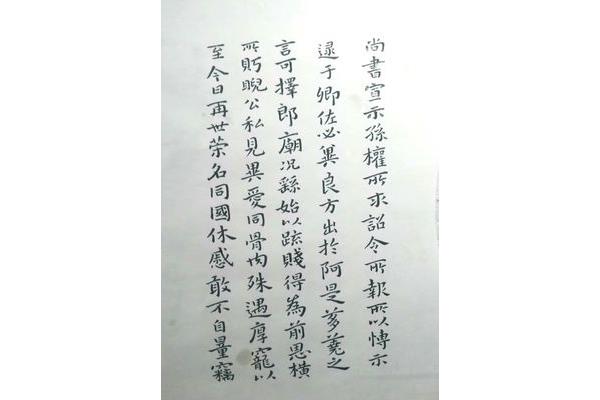 尚書宣示孫權所求詔令所報所以博示
逮于卿佐必冀良方出於阿是芻蕘之
言可擇郎廟況繇始以疏賤得為前恩橫
所眄睨公私見異愛同骨肉殊遇厚寵以
至今日再世荣名同國休慼敢不自量竊